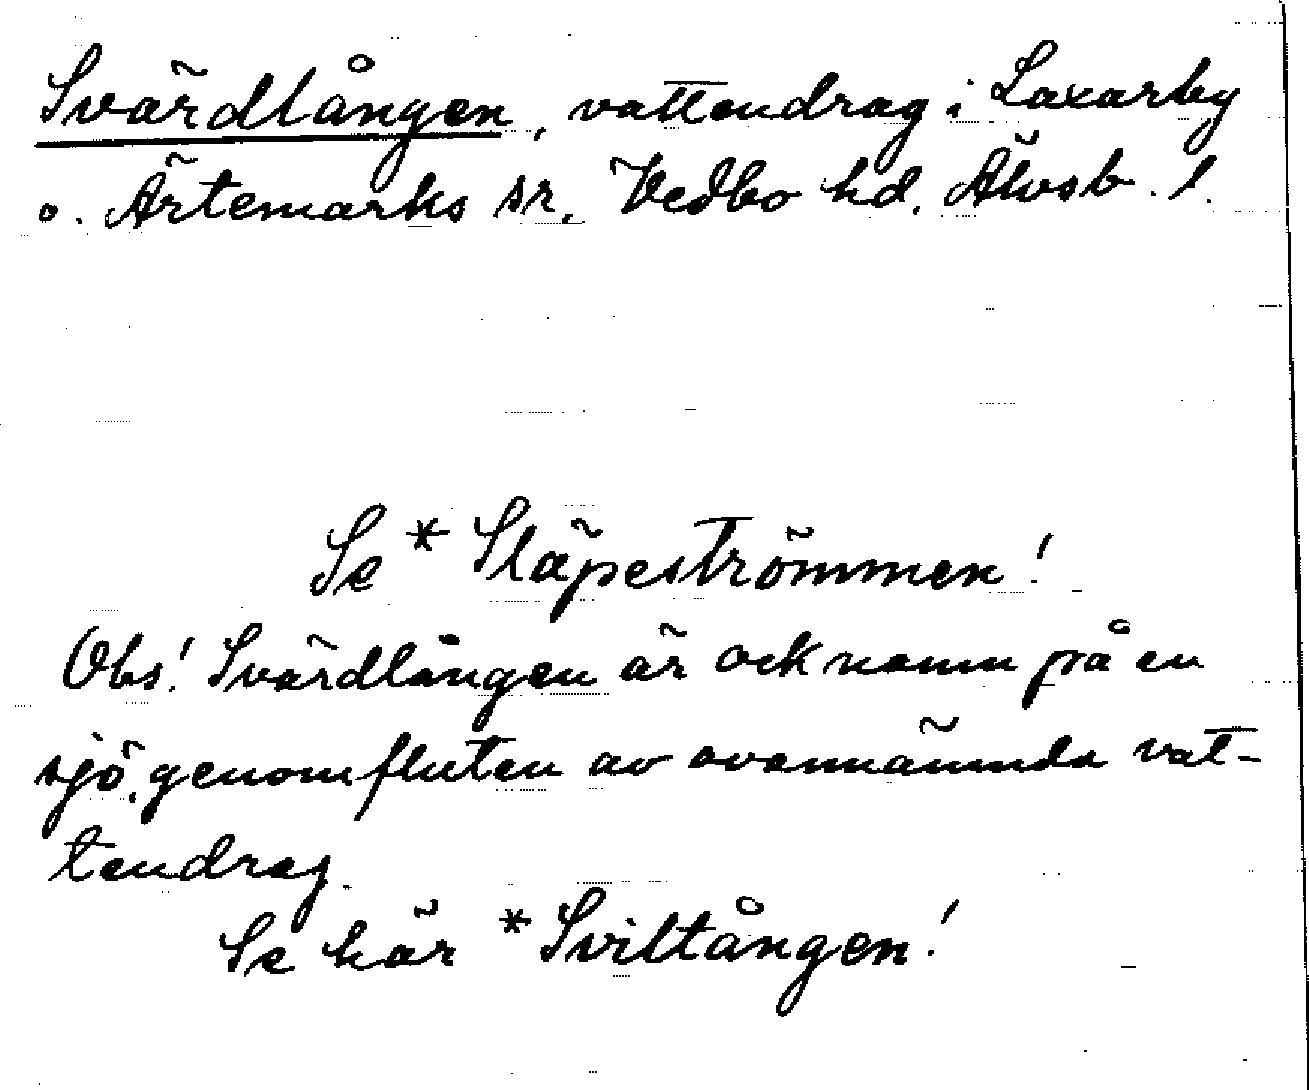 Svärdlången, vattendrag i Laxarby
o. Ärtemarks sr, Vedbo hd, Älvsb. l.
Se *Släpeströmmen!
Obs! Svärdlången är ock namn på en
sjö, genomfluten av ovannämnda vat-
tendrag.
Se här *Sviltången!